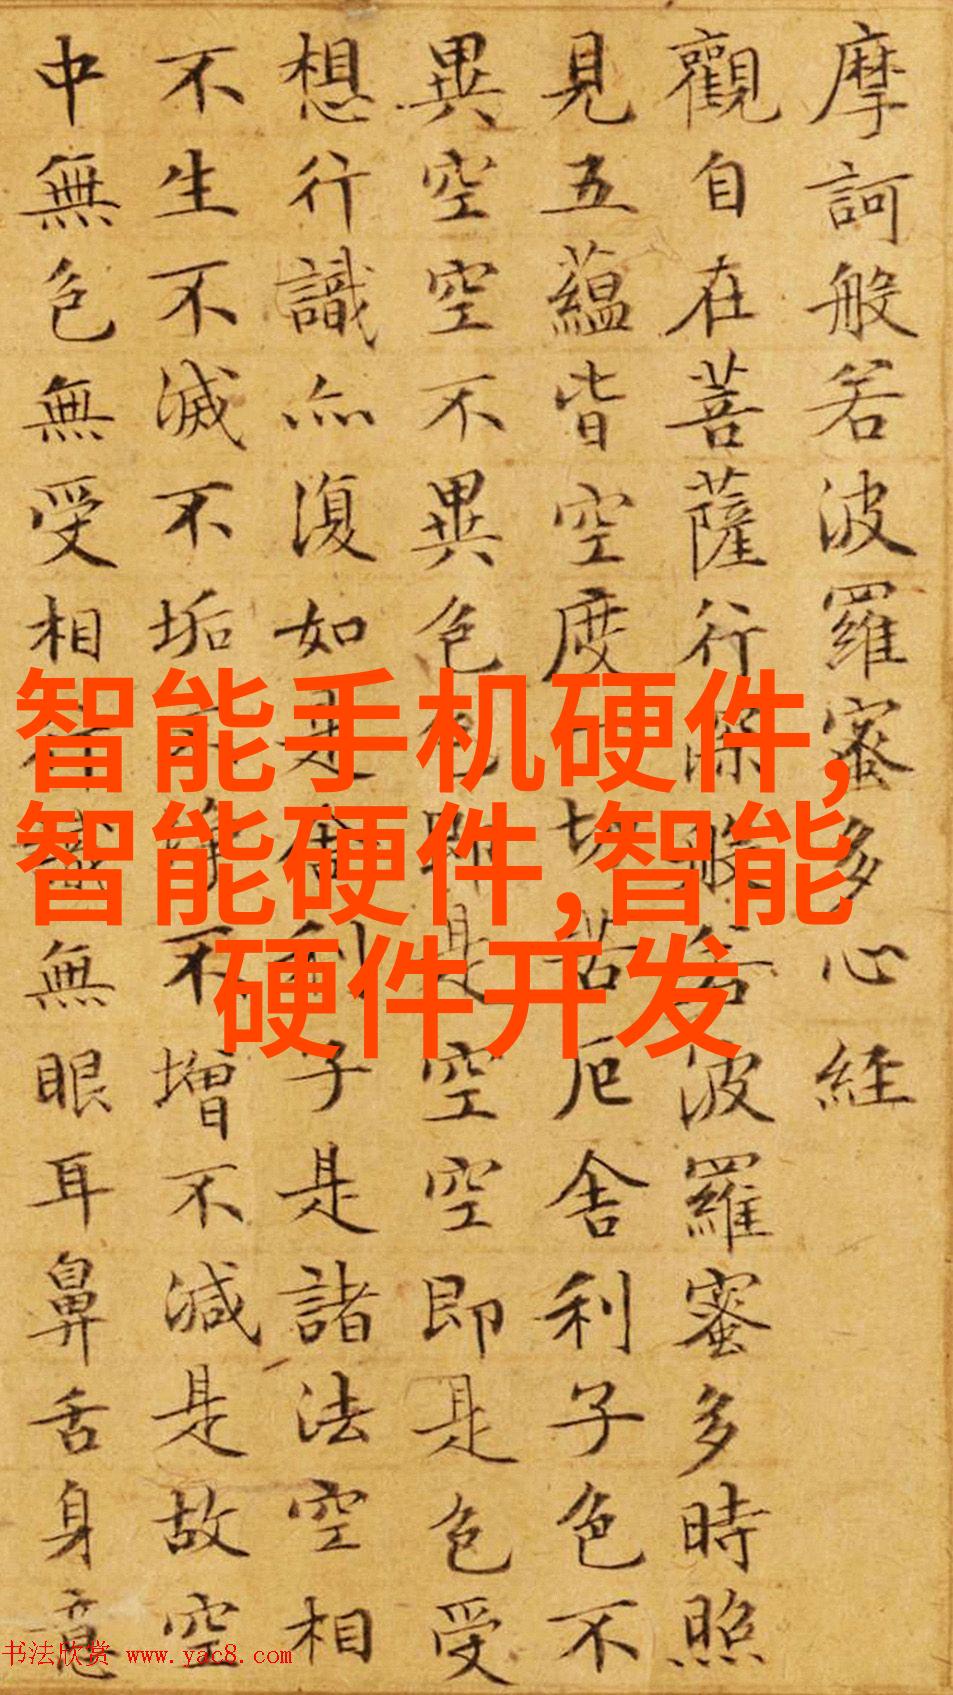 摩訶般若波羅蜜多心経
觀自在菩薩行深般若波羅蜜多時照
見五蘊皆空度一切苦厄舍利子色不
異空空不異色色即是空空即是色受
想行識亦復如是舍利子是諸法空相
不生不滅不垢不淨不增不減是故空
中無色無受相行識無眼耳鼻舌身意
智能手机硬件,
智能硬件,智能
硬件开发
书法欣赏 www.yac8.com